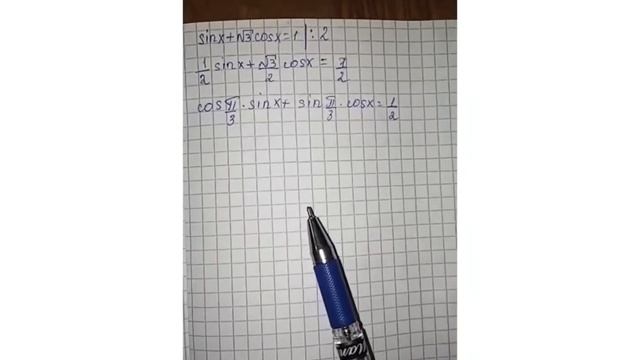 sinx+√3cosx=1|:2
1/2 sinx+√3/2 cosx=1/2
cos π/3·sinx+sin π/3·cosx=1/2